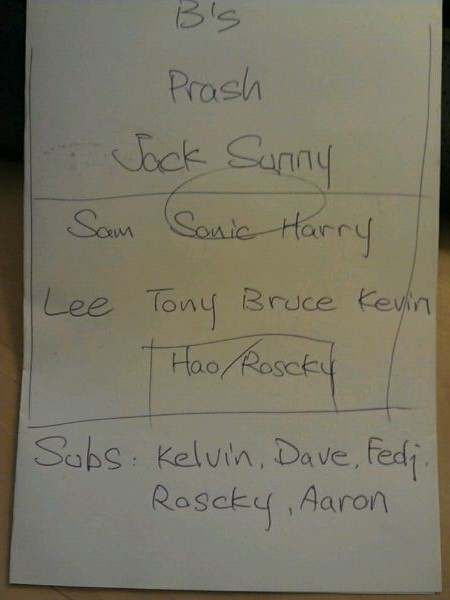 B's
Prash
Jack Sunny
Sam Sonic Harry
Lee Tony Bruce Kevin
Hao/Roscky
Subs: Kelvin, Dave, Fedj.
Roscky, Aaron